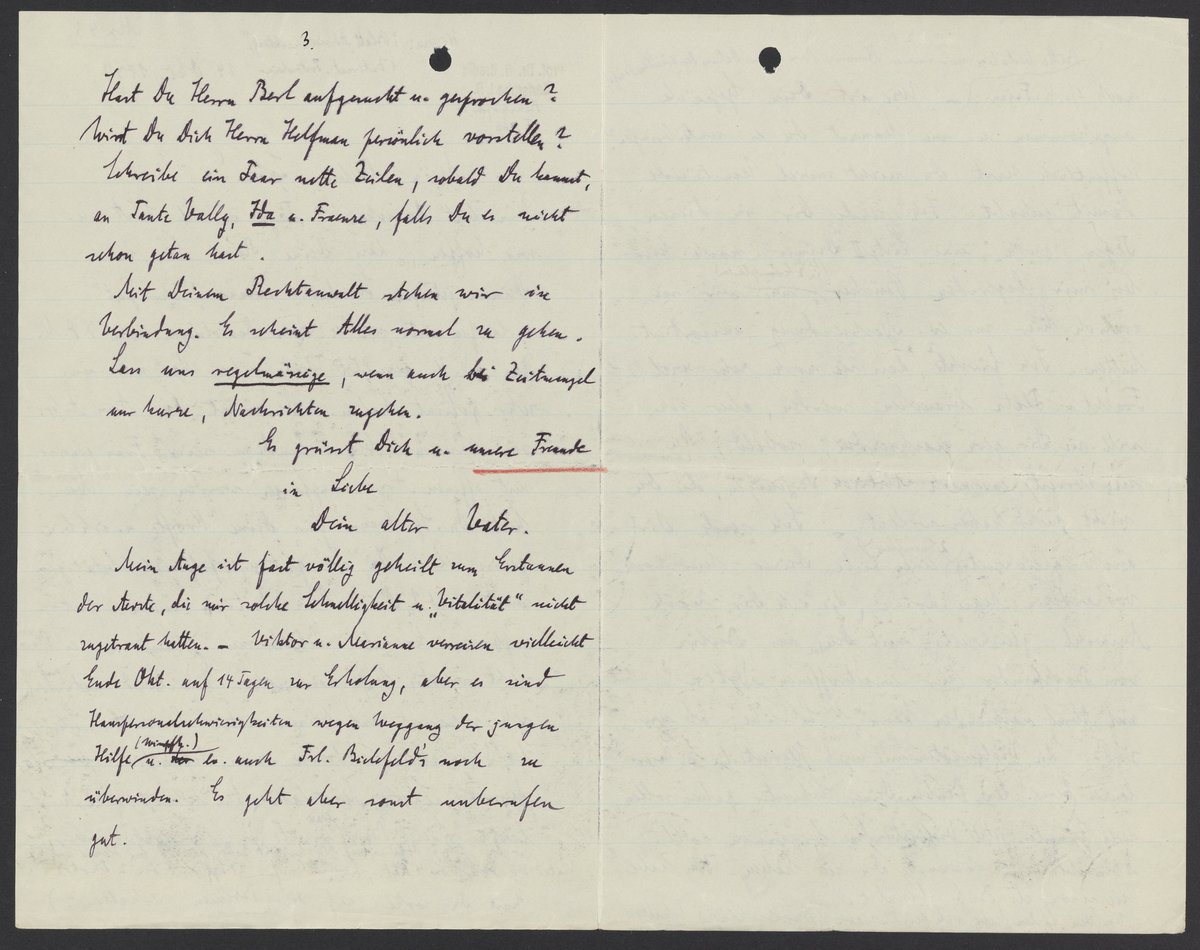 3.
Hast Du Herrn Berl aufgesucht u. gesprochen?
Wirst Du Dich Herrn Helfman persönlich vorstellen?
Schreibe ein Paar nette Zeilen, sobald Du kannst,
an Tante Vally, Ida u. Fraenze, falls Du es nicht
schon getan hast.
Mit Deinem Rechtanwalt stehen wir in
Verbindung. Es scheint Alles normal zu gehen.
Lass uns regelmässige, wenn auch bei Zeitmangel
nur kurze, Nachrichten zugehen.
Es grüsst Dich u. unsere Freunde
in Liebe
Dein alter Vater.
Mein Auge ist fast völlig geheilt zum Erstaunen
der Aerzte, die mir solche Schnelligkeit u. "Vitalität" nicht
zugetraut hatten. – Viktor u. Marianne verreisen vielleicht
Ende Okt. auf 14 Tagen zur Erholung, aber es sind
Hauspersonalschwierigkeiten wegen Weggang der jungen
Hilfe u. ev. auch Frl. Bielefeld's noch zu
überwinden. Es geht aber sonst unberufen
gut.